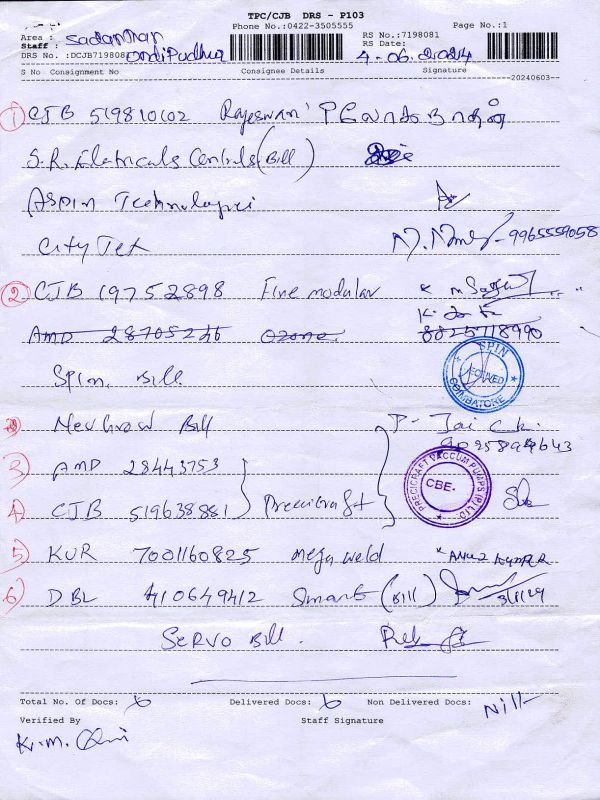 TPC/CJB DRS - P103
Phone No.:0422-3505555 Page No.:1
Area : RS No.:7198081
Staff : ondipudhur RS Date:
DRS No. :DCJB719808 4.06.2024
S No Consignment No Consignee Details Signature
20240603
1 CJB 519810102 Rajeswari
S.R. Eletricals Controls (Bill)
Aspin Technologies
City Tex 9965559058
2 CJB 19752898 Fine modular
AMD 28705246 Ozone 8825718990
Spin Bill
SPIN RECEIVED COIMBATORE
Bill P. Jai
3 AMD 28443753
4 CJB 519638881 Precicraft
PRECICRAFT VACCUM PUMPS (P) LTD CBE-
5 KUR 7001160825 mega weld
6 DBL 410649412 Smart (Bill)
SERVO Bill.
Total No. Of Docs: 6 Delivered Docs: 6 Non Delivered Docs: Nill
Verified By Staff Signature
K.M.